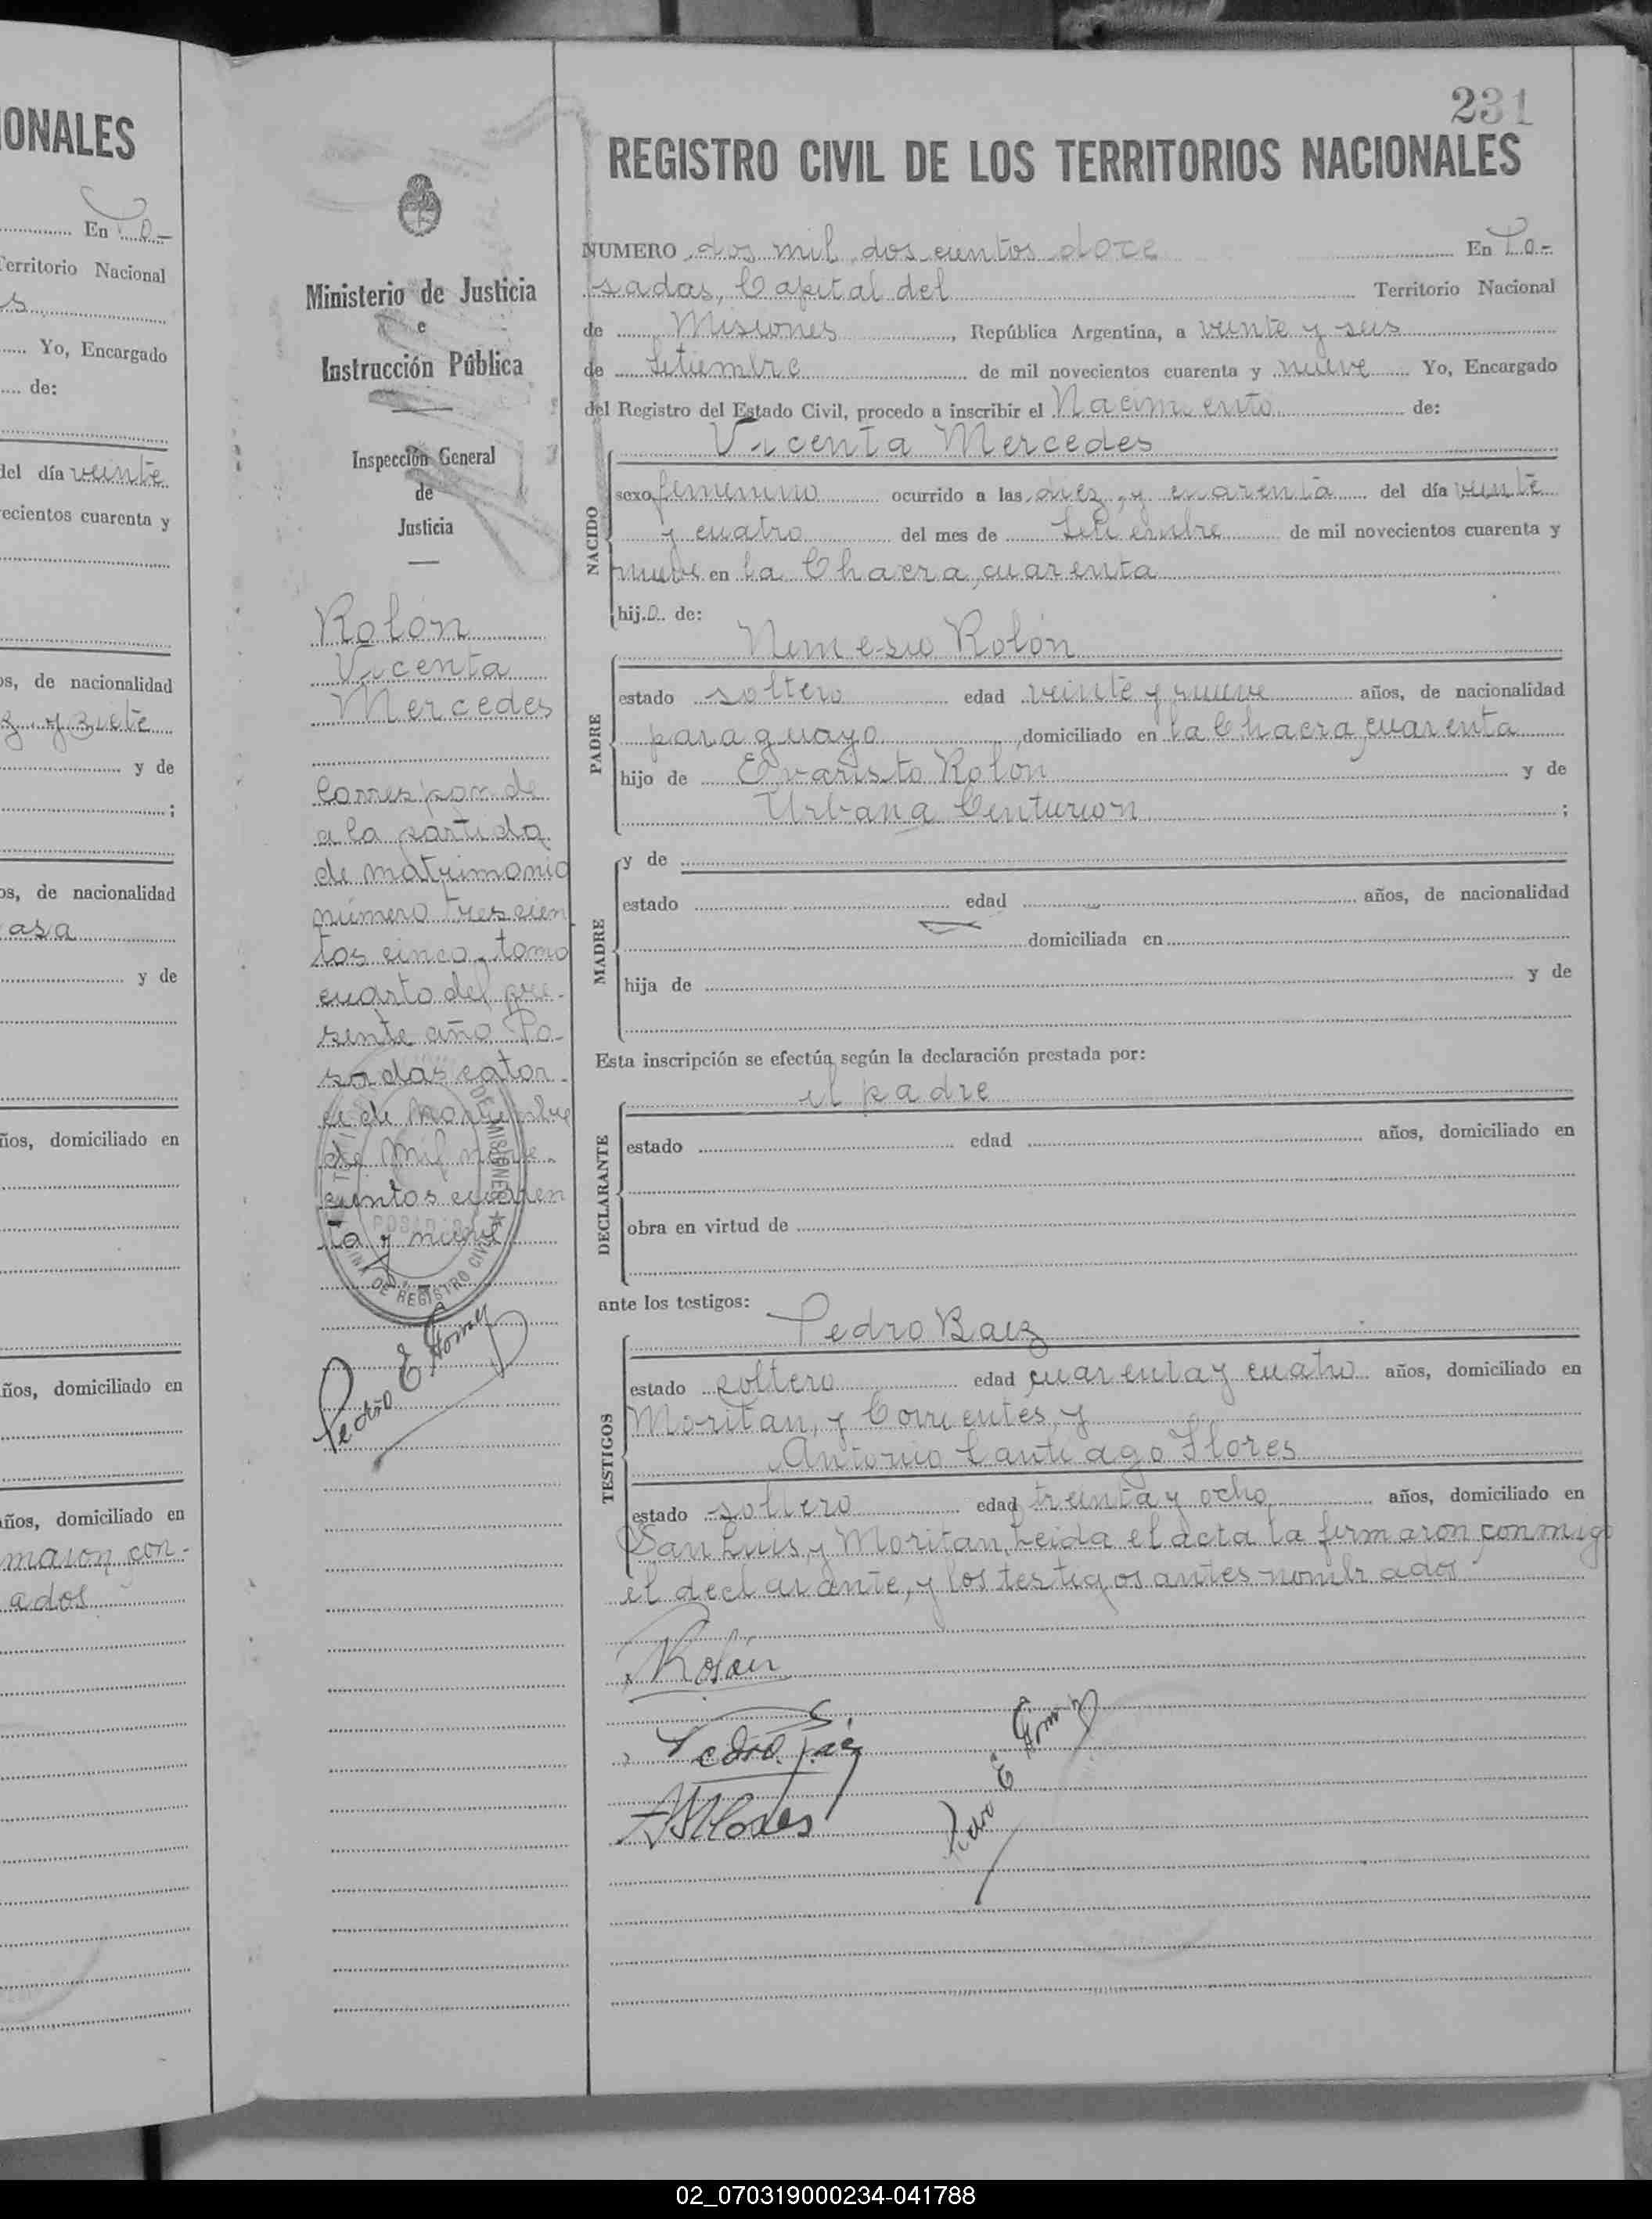 ONALES
En Po-
Territorio Nacional
Yo, Encargado
de:
del día veinte
ecientos cuarenta y
os, de nacionalidad
y siete
y de
;
os, de nacionalidad
asa
y de
ños, domiciliado en
ños, domiciliado en
años, domiciliado en
maron con-
ados
Ministerio de Justicia
e
Instrucción Pública
Inspección General
de
Justicia
Rolón
Vicenta
Mercedes
Corresponde
a la partida
de matrimonio
número trescien
tos cinco, tomo
cuarto del pre-
sente año. Po-
sadas cator-
ce de Noviembre
de mil nove-
cientos cuaren
ta y nueve
DE MISIONES
POSADAS
OFICINA DE REGISTRO CIVIL
Pedro E Gomez
231
REGISTRO CIVIL DE LOS TERRITORIOS NACIONALES
NUMERO dos mil doscientos doce En Po-
sadas, Capital del Territorio Nacional
de Misiones, República Argentina, a veinte y seis
de Setiembre de mil novecientos cuarenta y nueve Yo, Encargado
del Registro del Estado Civil, procedo a inscribir el Nacimiento de:
Vicenta Mercedes
NACIDO
sexo femenino ocurrido a las diez, y cuarenta del día veinte
y cuatro del mes de Setiembre de mil novecientos cuarenta y
nueve en la Chacra cuarenta
hij.a. de:
Nemesio Rolón
PADRE
estado soltero edad veinte y nueve años, de nacionalidad
paraguayo, domiciliado en la Chacra cuarenta
hijo de Evaristo Rolón y de
Urbana Centurion ;
MADRE
y de
estado edad años, de nacionalidad
domiciliada en
hija de y de
Esta inscripción se efectúa según la declaración prestada por:
el padre
DECLARANTE
estado edad años, domiciliado en
obra en virtud de
ante los testigos:
Pedro Baez
TESTIGOS
estado soltero edad cuarenta y cuatro años, domiciliado en
Moritan, y Corrientes, y
Antonio Santiago Flores
estado soltero edad treinta y ocho años, domiciliado en
San Luis, y Moritan, Leida el acta la firmaron conmigo
el declarante, y los testigos antes nombrados
Rolón
Pedro Baéz
ASFlores
Pedro E Gomez
02_070319000234-041788